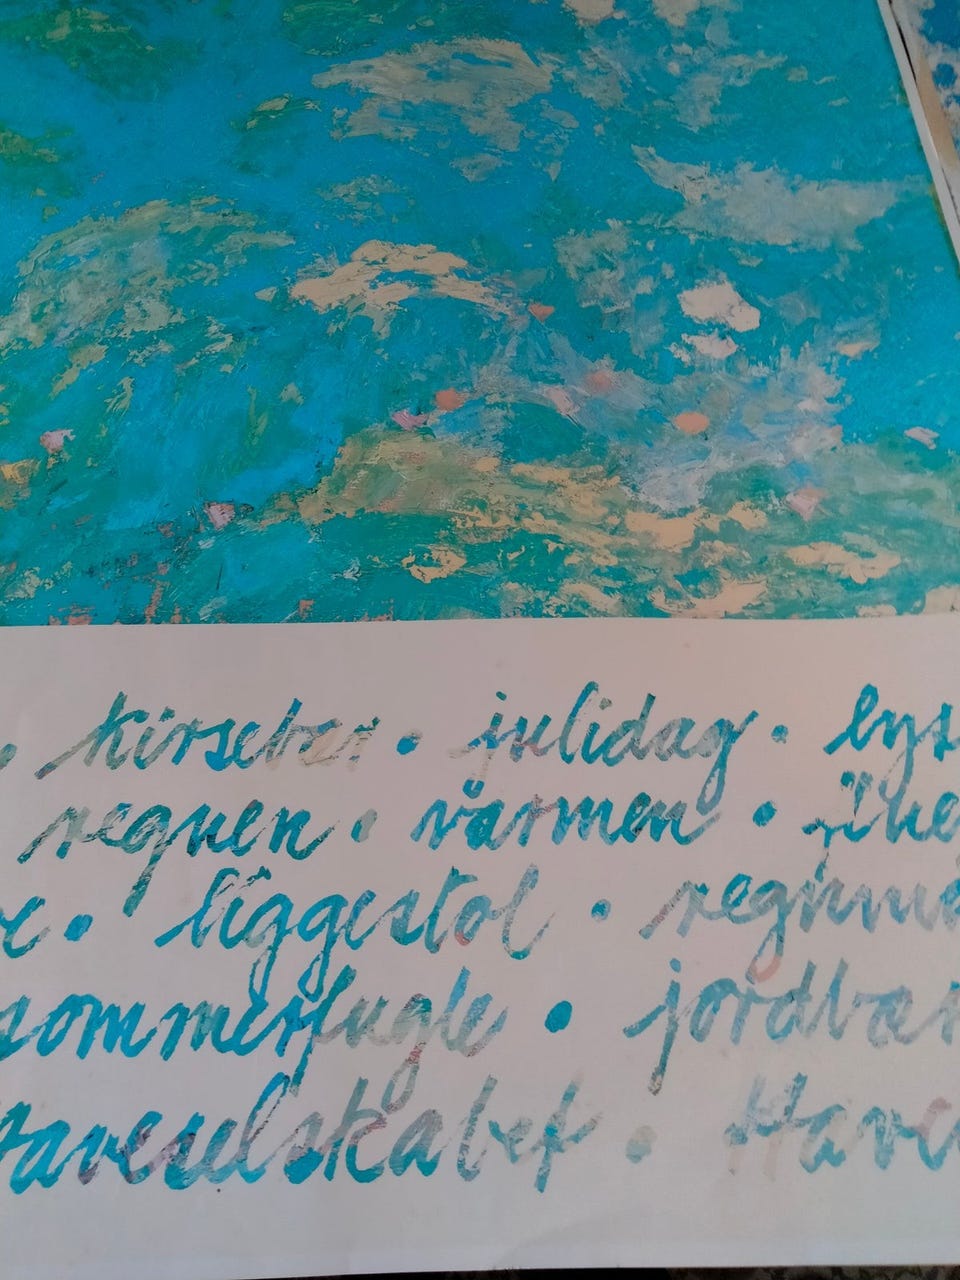 • kirsebær • julidag • lys
regnen • vårmen •
• liggestol •
sommerfugle • jordbær
Haveselskabet • Have